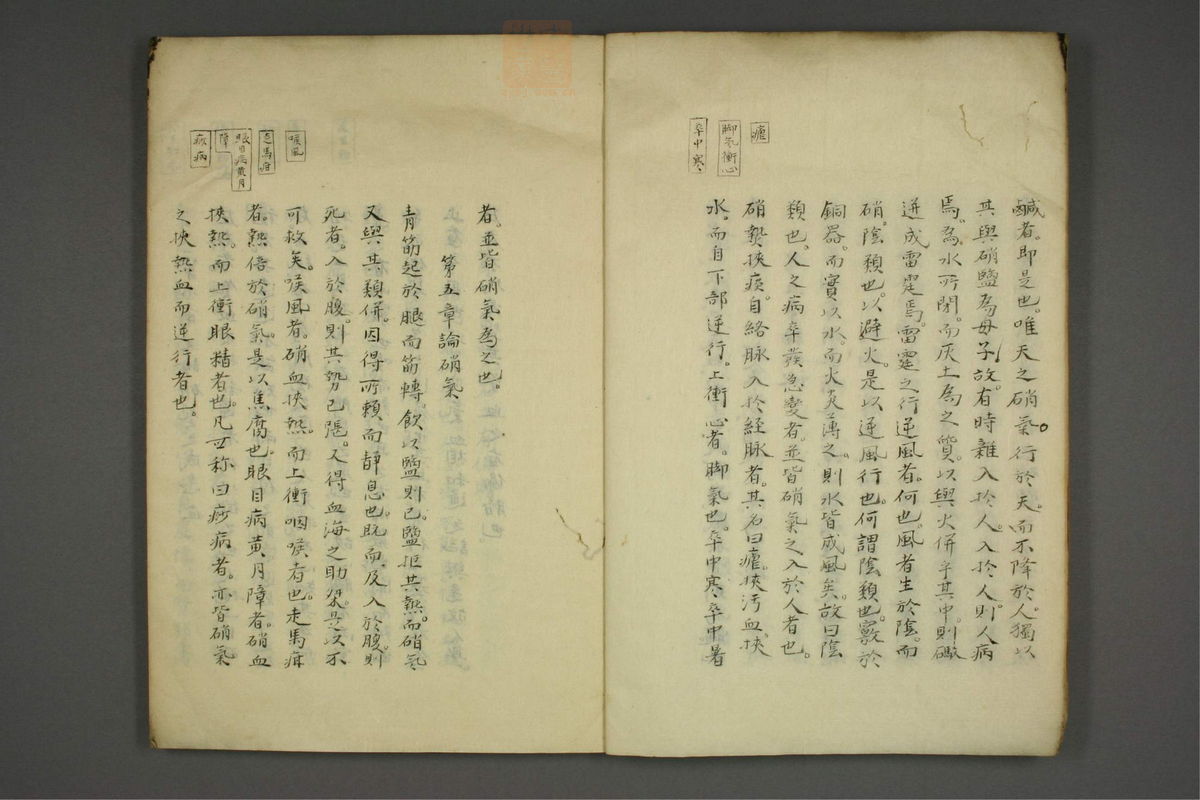 鹹者。即是也。唯天之硝氣。行於天。而不降於人。獨以
其與硝鹽為母子。故有時雜入於人。入於人。則人病
焉。為水所閉。而灰土為之質。以與火併乎其中。則
迸成雷霆焉。雷霆之行逆風者。何也。風者生於陰。而
硝。陰類也。以避火。是以逆風行也。何謂陰類也。竅於
銅器。而實以水。而火炎薄之。則水皆成風矣。故曰陰
類也。人之病卒發急變者。並皆硝氣之入於人者也。
硝熱挾痰。自絡脉入於経脉者。其名曰瘧。挾汚血。挾
水。而自下部逆行。上衝心者。脚氣也。卒中寒。卒中暑
瘧
脚氣衝心
卒中寒
者。並皆硝氣為之也。
第五章論硝氣
青筋起於腿而筋轉。飲以鹽則已。鹽拒其熱。而硝氣
又與其類併。因得所頼而静息也。既而及入於腹。則
死者。入於腹。則其勢已隠。又得血海之助。是以不
可救矣。喉風者。硝血挾熱。而上衝咽喉者也。走馬疳
者。熱倍於硝氣。是以焦腐也。眼目病黄月障者。硝血
挾熱。而上衝眼精者也。凡可称曰痧病者。亦皆硝氣
之挾熱血而逆行者也。
喉風
走馬疳
眼目病黄月
障
痧病